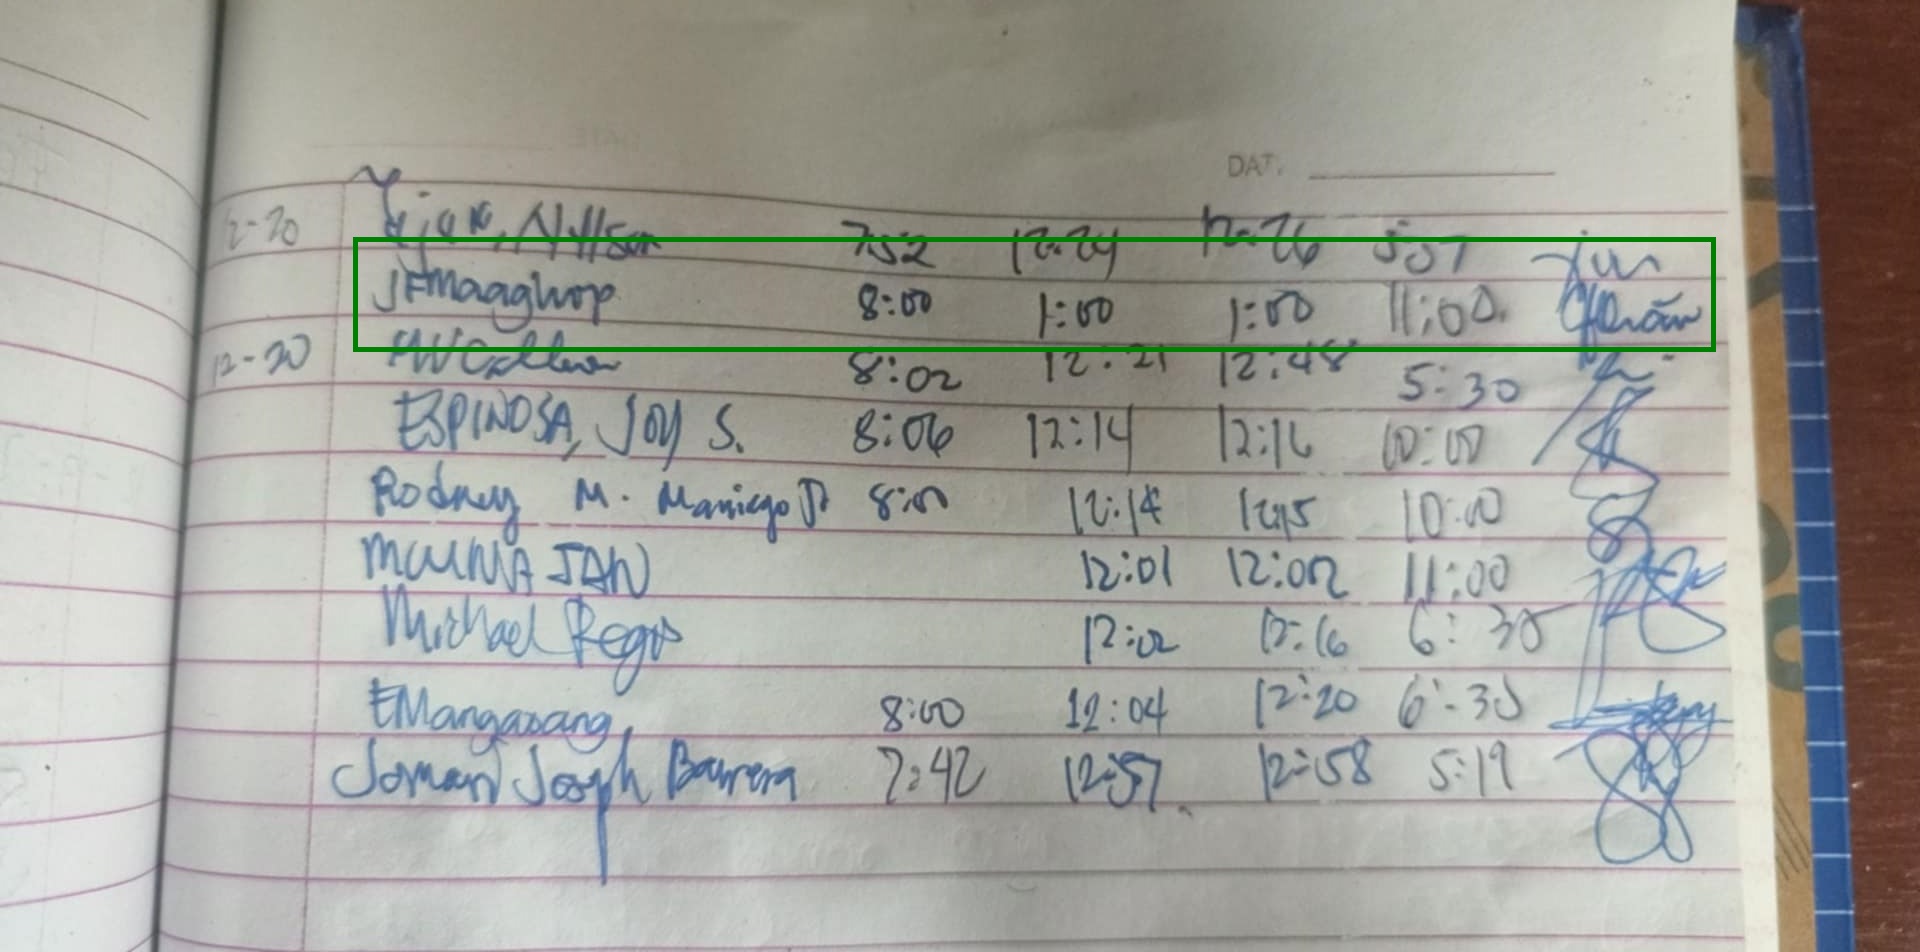 DATE
12-20 7:52 12:24 12:26 5:57
JFmaaghop 8:00 1:00 1:00 11:00
12-20 8:02 12:21 12:48 5:30
ESPINOSA, JOY S. 8:06 12:14 12:16 10:00
Rodney M. Maniego Jr 8:00 12:14 12:15 10:00
JAN 12:01 12:02 11:00
Michael Rego 12:02 12:16 6:30
EMangasang 8:00 12:04 12:20 6:30
Joman Joseph Barrera 7:42 12:57 12:58 5:19